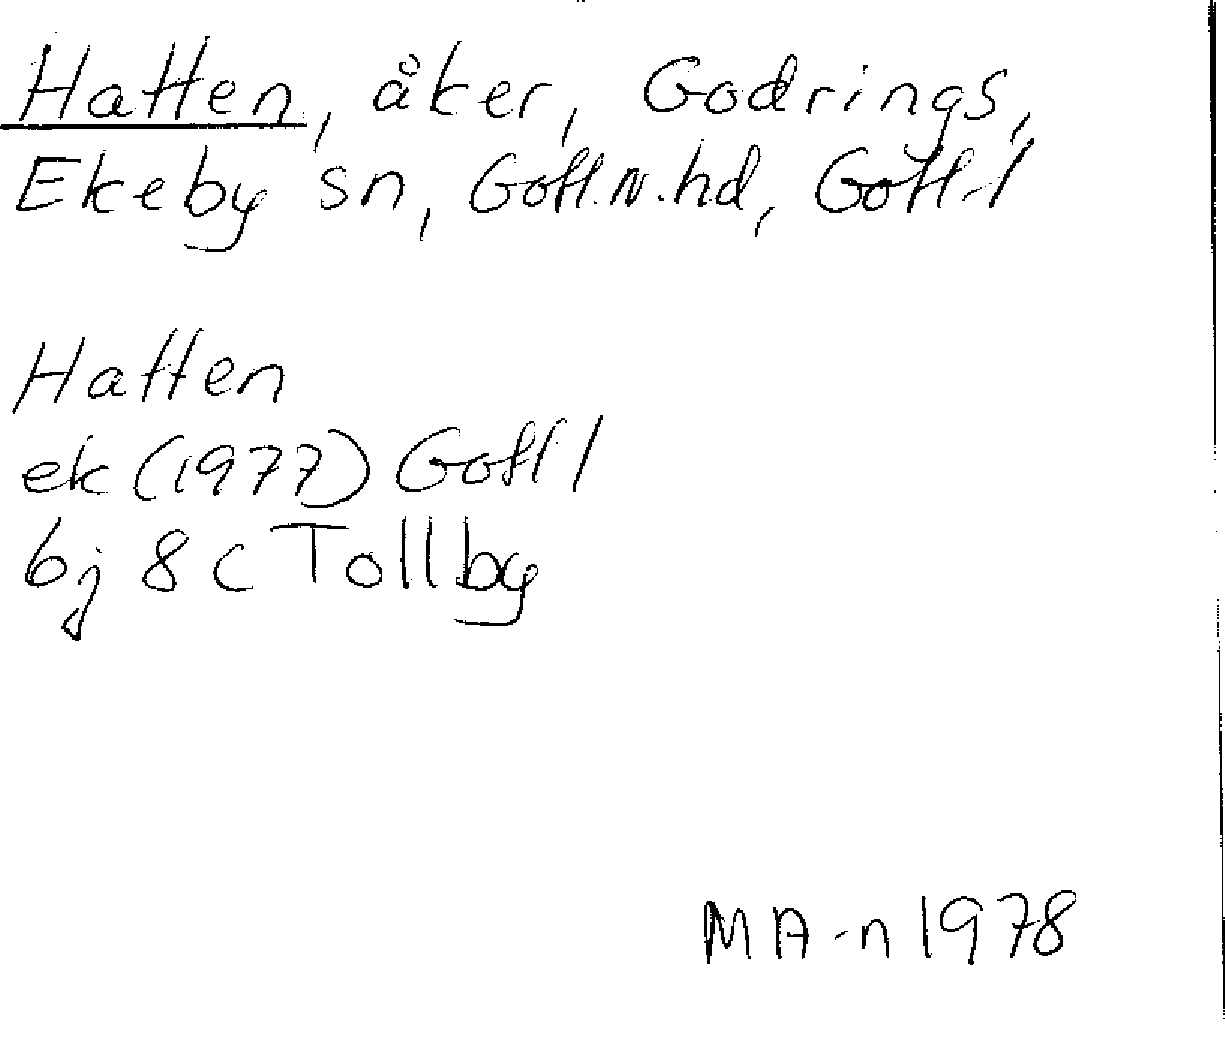 Hatten, åker, Godrings,
Ekeby sn, Gotl.N.hd, Gotl.l
Hatten
ek (1977) Gotl l
6j 8c Tollby
MA-n 1978